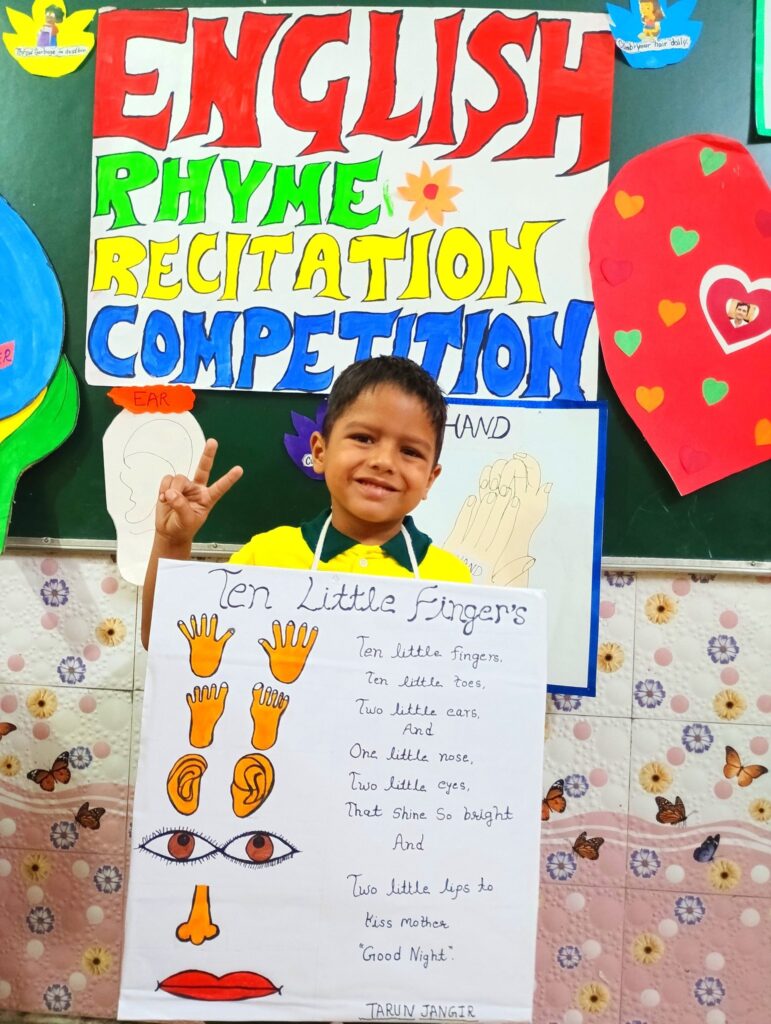 Comb your hair daily.
ENGLISH
RHYME
RECITATION
COMPETITION
EAR
HAND
HAND
Ten Little Finger's
Ten little fingers,
Ten little toes,
Two little ears,
And
One little nose,
Two little eyes,
That shine So bright
And
Two little lips to
Kiss mother
"Good Night".
TARUN JANGIR